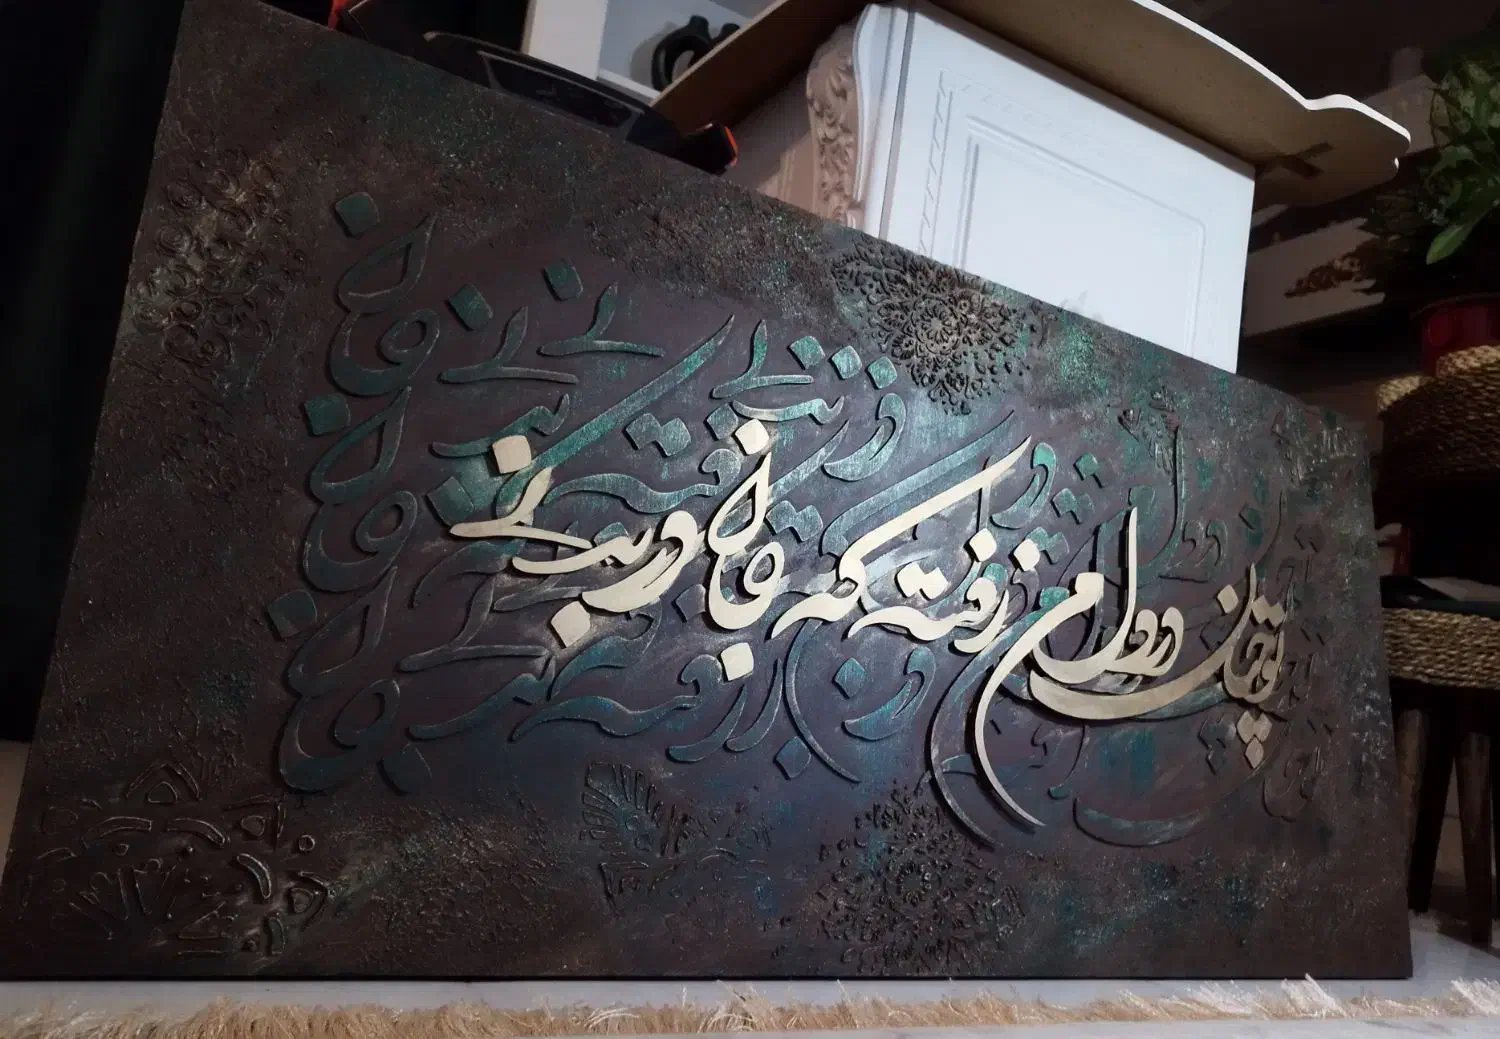 تو چنان در دل من رفته که جان در بدنی